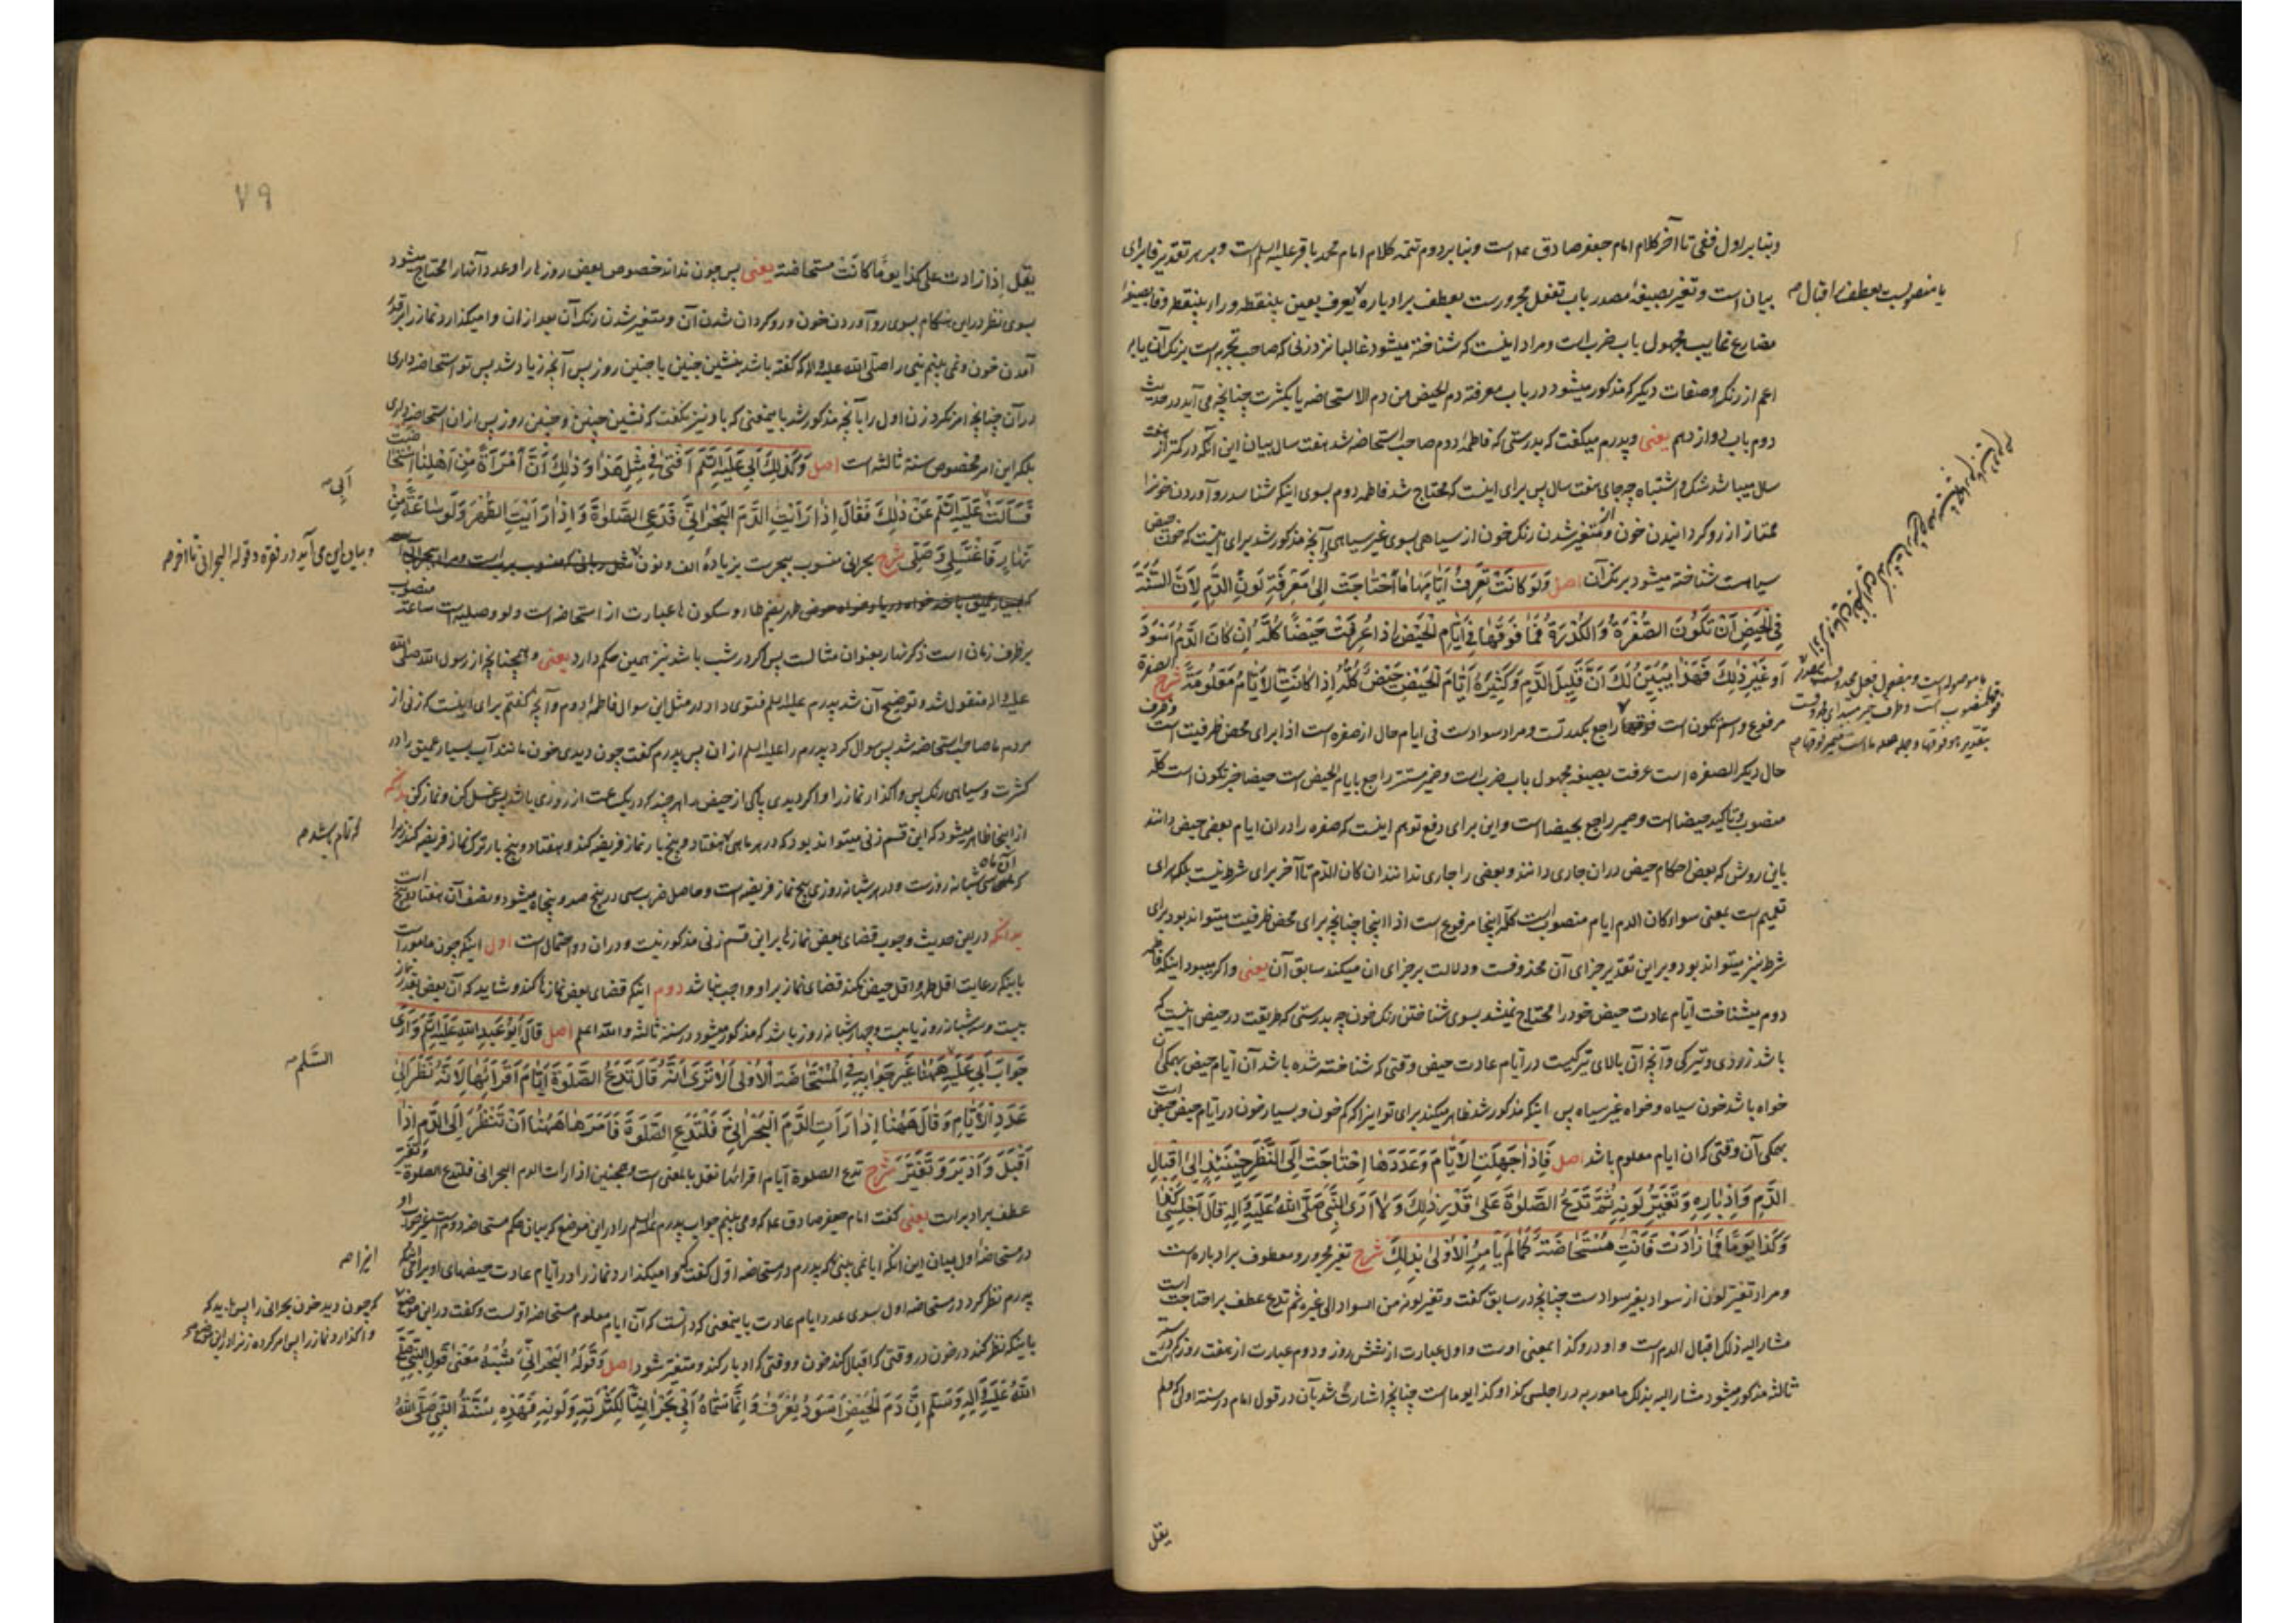 وبنا بر اول ففی تا آخر کلام امام جعفر صادق عم است وبنا بر دوم تتمه کلام امام محمد باقر علیه السلم است و بر هر تقدیر فا برای
بیان است و تغیر بصیغهٔ مصدر باب تفعل مجرورست بعطف بر ادباره یعرف بعین بینقطه و راء بینقطه و فا بصیغهٔ
یا منصوبست بعطف بر اقبال صح
مضارع غایب مجهول باب ضرب است و مراد اینست که شناخته میشود غالبا نزد زنی که صاحب تجربه است برنک آن یا بر
اعم از رنک و صفات دیکر که مذکور میشود در باب معرفة دم الحیض من دم الاستحاضه یا بکثرت چنانچه می آید در حدیث
دوم باب دوازدهم یعنی و پدرم میکفت که بدرستی که فاطمهٔ دوم صاحب استحاضه شد هفت سال بیان این آنکه در کمتر از هفت
سال میباشد شک و اشتباه چه جای هفت سال پس برای اینست که محتاج شد فاطمه دوم بسوی اینکه شناسد رو آوردن خونرا
ممتاز از رو کردانیدن خون و متغیر شدن رنک خون از سیاهی بسوی غیر سیاهی و آنچه مذکور شد برای اینست که خون حیض
سیاست شناخته میشود برنک آن اصل وَلَو کانَتْ تَعرِفُ اَیّامَها مَا احْتاجَتْ اِلیٰ مَعْرِفَةِ لَونِ الدَّمِ لِاَنَّ السُّنَّةَ
فِی الْحَیضِ اَنْ تَکُونَ الصُّفْرَةُ وَالْکُدْرَةُ فَمٰا فَوقَها فِی اَیّامِ الْحَیْضِ اِذا عُرِفَتْ حَیْضًا کُلَّهُ اِنْ کانَ الدَّمُ اَسْوَدَ
اَو غَیْرَ ذٰلِکَ فَهٰذا یُبَیِّنُ لَکَ اَنَّ قَلِیلَ الدَّمِ وَکَثِیرَهُ اَیّامَ الْحَیضِ حَیْضٌ کُلُّهُ اِذا کانَتِ الاَیّامُ مَعْلُومَةً شرح الصفرة
مرفوع و اسم تکون است فوقها راجع بکدرتست و مراد سوادست فی ایام حال از صفره است اذا برای محض ظرفیت است
حال دیکر الصفره است عرفت بصیغه مجهول باب ضرب است و ضمیر مستتر راجع بایام الحیض است حیضا خبر تکون است کلّه
منصوب و تاکید حیضا است و ضمیر راجع بحیضا است و این برای دفع توهم اینست که صفره را در ان ایام بعضی حیض دانند
باین روش که بعض احکام حیض در ان جاری دانند و بعضی را جاری ندانند ان کان الدّم تا آخر برای شرط نیست بلکه برای
تعمیم است بمعنی سواء کان الدم ایام منصوب است کلّه اینجا مرفوع است اذا اینجا چنانچه برای محض ظرفیت میتواند بود برای
شرط نیز میتواند بود و بر این تقدیر جزای آن محذوفست و دلالت بر جزای ان میکند سابق آن یعنی و اکر میبود اینکه فاطمه
دوم میشناخت ایّام عادت حیض خود را محتاج نمیشد بسوی شناختن رنک خون چه بدرستی که طریقت در حیض اینست که
باشد زردی و تیرکی و آنچه آن بالای تیرکیست در ایّام عادت حیض وقتی که شناخته شده باشد آن ایّام حیض همکی آن
خواه باشد خون سیاه و خواه غیر سیاه پس اینکه مذکور شد ظاهر میکند برای تو اینرا که کم خون و بسیار خون در ایّام حیض حیض است
همکی آن وقتی که ان ایام معلوم باشد اصل فَاِذا جَهِلَتِ الاَیّامَ وَعَدَدَهَا احْتاجَتْ اِلَی النَّظَرِ حِینَئِذٍ اِلیٰ اِقبالِ
الدَّمِ وَاِدْبارِهِ وَتَغَیُّرِ لَونِهِ ثُمَّ تَدَعُ الصَّلٰوةَ عَلیٰ قَدْرِ ذٰلِکَ وَلا اَرَی النَّبِیَّ صَلَّی اللهُ عَلَیْهِ وَآلِهِ قالَ اجْلِسِی کَذا
وَکَذا یَومًا فَمٰا زادَتْ فَاَنْتِ مُسْتَحاضَةٌ کَمٰا لَمْ یَاْمُرِ الاُولیٰ بِذٰلِکَ شرح تغیر مجرور و معطوف بر ادباره است
و مراد تغیّر لون از سواد بغیر سوادست چنانچه در سابق کفت و تغیر لونه من السواد الی غیره ثم تدع عطف بر احتاجت است
مشار الیه ذلک اقبال الدم است واو در و کذا بمعنی اوست و اول عبارت از شش روز و دوم عبارت از هفت روز که در سنت
ثالثه مذکور میشود مشار الیه بذلک مامور به در اجلسی کذا و کذا یوما است چنانچه اشارت شد بآن در قول امام در سنة اولی که و لم
یقل
٧٩
یقل اِذا زادت علی کذا یَومًا کانَتْ مستحاضة یعنی پس چون نداند خصوص بعض روزها را و عدد آنها را محتاج میشود
بسوی نظر در این هنکام بسوی رو آوردن خون و رو کردان شدن آن و متغیر شدن رنک آن بعد از ان وامیکذارد نماز را بر قدر
آمدن خون و نمی بینم نبی را صلّی الله علیه و اله که کفته باشد بنشین چنین یا چنین روز پس آنچه زیاد شد پس تو استحاضه داری
در آن چنانچه امر نکرد زن اول را بآنچه مذکور شد باینمعنی که باو نیز نکفت که بنشین چنین و چنین روز پس از ان استحاضه داری
بلکه این امر مخصوص سنة ثالثه است اصل وَکَذٰلِکَ اَبِی عَلَیهِ السَّلم اَفتیٰ فِی مِثْلِ هٰذا وَذٰلِکَ اَنَّ امْرَأَةً مِنْ اَهْلِنَا اسْتُحاضَتْ
اَبِی صح
فَسَاَلَتْ عَلَیهِ السَّلم عَنْ ذٰلِکَ فَقالَ اِذا رَاَیْتِ الدَّمَ البَحْرانِیَّ فَدَعِی الصَّلٰوةَ وَاِذا رَاَیْتِ الطُّهْرَ وَلَو ساعَةً مِنْ
نَهارٍ فَاغْتَسِلِی وَصَلِّی شرح بحرانی منسوب ببحرست بزیادهٔ الف و نون
و بیان این می آید در فقره و قوله البحرانی تا اخر صح
طهر بضم طاء و سکون ها عبارت از استحاضه است و لو وصلیه است ساعة منصوب
بر ظرف زمان است ذکر نهار بعنوان مثالست پس اکر در شب باشد نیز همین حکم دارد یعنی و همچنانچه از رسول الله صلّی الله
علیه و اله منقول شد و توضیح آن شد پدرم علیه السلم فتوی داد در مثل این سوال فاطمهٔ دوم و آنچه کفتم برای اینست که زنی از
مردم ما صاحب استحاضه شد پس سوال کرد پدرم را علیه السلم از ان پس پدرم کفت چون دیدی خون مانند آب بسیار عمیق را در
کثرت و سیاهی رنک پس واکذار نماز را و اکر دیدی پاکی از حیض را هر چند که در یک ساعت از روزی باشد پس غسل کن و نماز کن بدانکه
از اینجا ظاهر میشود که این قسم زنی میتواند بود که در هر ماهی هفتاد و پنج بار نماز فریضه کند و هفتاد و پنج بار ترک نماز فریضه کند زیرا
که تمام باشد صح
که سی شبانه روزست و در هر شبانه روزی پنج نماز فریضه است و حاصل ضرب سی در پنج صد و پنجاه میشود و نصف آن هفتاد و پنج است
بدانکه در این حدیث وجوب قضای بعض نمازها بر این قسم زنی مذکور نیست و در ان دو احتمال است اول اینکه چون مامور است
باینکه رعایت اقل طهر و اقل حیض نکند قضای نماز بر او واجب نباشد دوم اینکه قضای بعض نمازها کند و شاید که آن بعض بقدر نماز
بیست و سه شبانه روز یا بیست و چهار شبانه روز باشد که مذکور میشود در سنة ثالثه و الله اعلم اصل قالَ اَبُو عَبدِ اللهِ عَلَیهِ السَّلم وَاَریٰ
جَوابَ اَبِی عَلَیهِ هٰهُنا غَیرَ جَوابِهِ فِی الْمُسْتَحاضَةِ الْاُولیٰ اَلا تَریٰ اَنَّهُ قالَ تَدَعُ الصَّلٰوةَ اَیّامَ اَقْرائِها لِاَنَّهُ نَظَرَ اِلیٰ
السَّلم صح
عَدَدِ الاَیّامِ وَقالَ هٰهُنا اِذا رَاَتِ الدَّمَ الْبَحْرانِیَّ فَلْتَدَعِ الصَّلٰوةَ فَاَمَرَها هٰهُنا اَنْ تَنْظُرَ اِلَی الدَّمِ اِذا
اَقْبَلَ وَاَدْبَرَ وَتَغَیَّرَ شرح تدع الصلوة ایّام اقرائها نقل بالمعنی است و همچنین اذا رات الدم البحرانی فلتدع الصلوة و تغیّر
عطف بر ادبر است یعنی کفت امام جعفر صادق علیه که و می بینم جواب پدرم علیه السلم را در این موضع که بیان حکم مستحاضه دوم است غیر جواب او
در مستحاضهٔ اول بیان این آنکه ایا نمی بینی که پدرم در مستحاضه اول کفت که وامیکذارد نماز را در ایّام عادت حیضهای او برای اینکه
اینرا صح
پدرم نظر کرد در مستحاضه اول بسوی عدد ایام عادت باینمعنی که دانست که آن ایام معلوم مستحاضه اولست و کفت در این موضع
که چون دید خون بحرانی را پس باید که
واکذارد نماز را پس امر کرده زنرا در این موضع صح
باینکه نظر کند در خون در وقتی که اقبال کند خون و وقتی که ادبار کند و متغیر شود اصل وَقَولُهُ الْبَحْرانِیَّ شِبْهُ مَعْنیٰ قَولِ النَّبِیِّ صَلَّی
اللهُ عَلَیهِ وَآلِهِ وَسَلَّم اِنَّ دَمَ الْحَیضِ اَسْوَدُ یُعْرَفُ وَاِنَّما سَمّاهُ اَبِی بَحْرانِیًّا لِکَثْرَتِهِ وَلَونِهِ فَهٰذِهِ سُنَّةُ النَّبِیِّ صَلَّی اللهُ